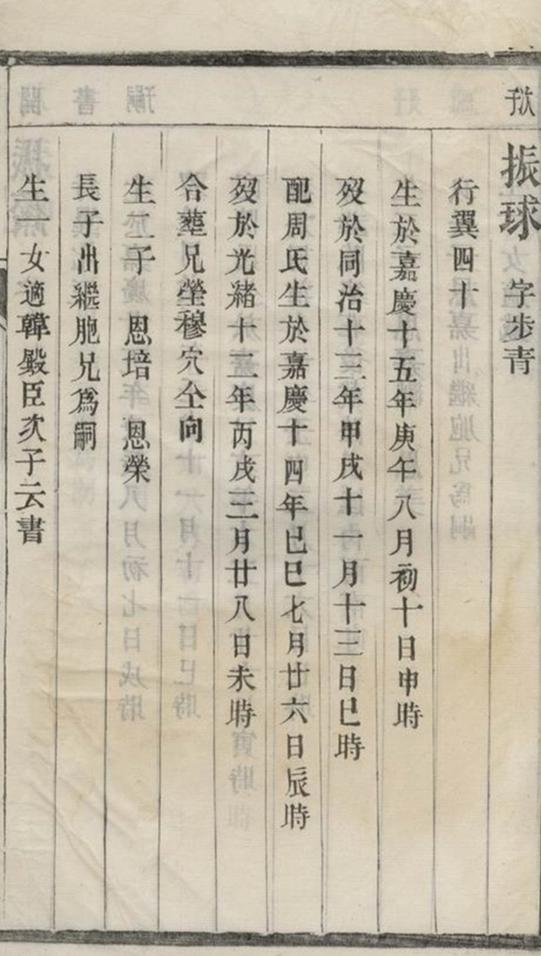 振球 字步青
行翼四十
生於嘉慶十五年庚午八月初十日申時
歿於同治十三年甲戌十一月十三日巳時
配周氏生於嘉慶十四年己巳七月廿六日辰時
歿於光緒十二年丙戌三月廿八日未時
合葬兄塋穆穴仝向
生二子 恩培 恩榮
長子出繼胞兄爲嗣
生一女適韓毅臣次子云書